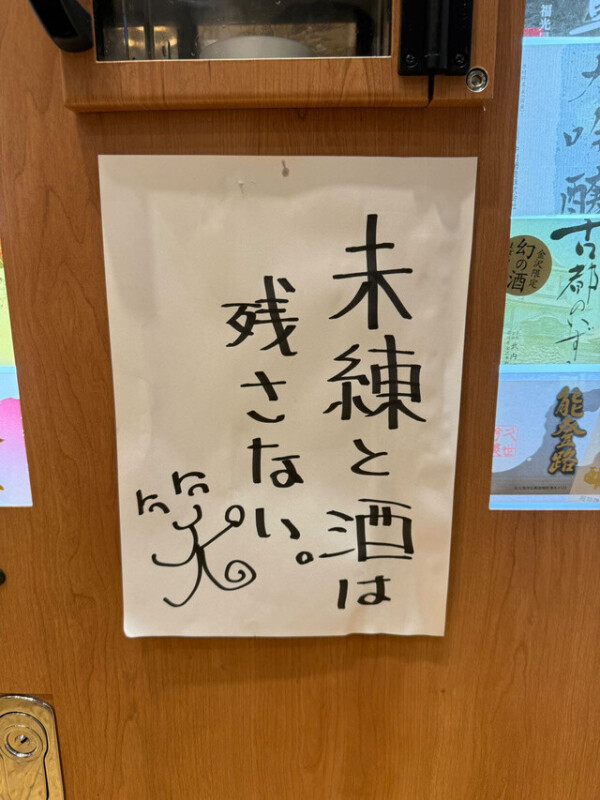 未練と酒は
残さない。
笑
福光
大吟醸
古都のいずみ
金沢限定
幻の酒
能登路